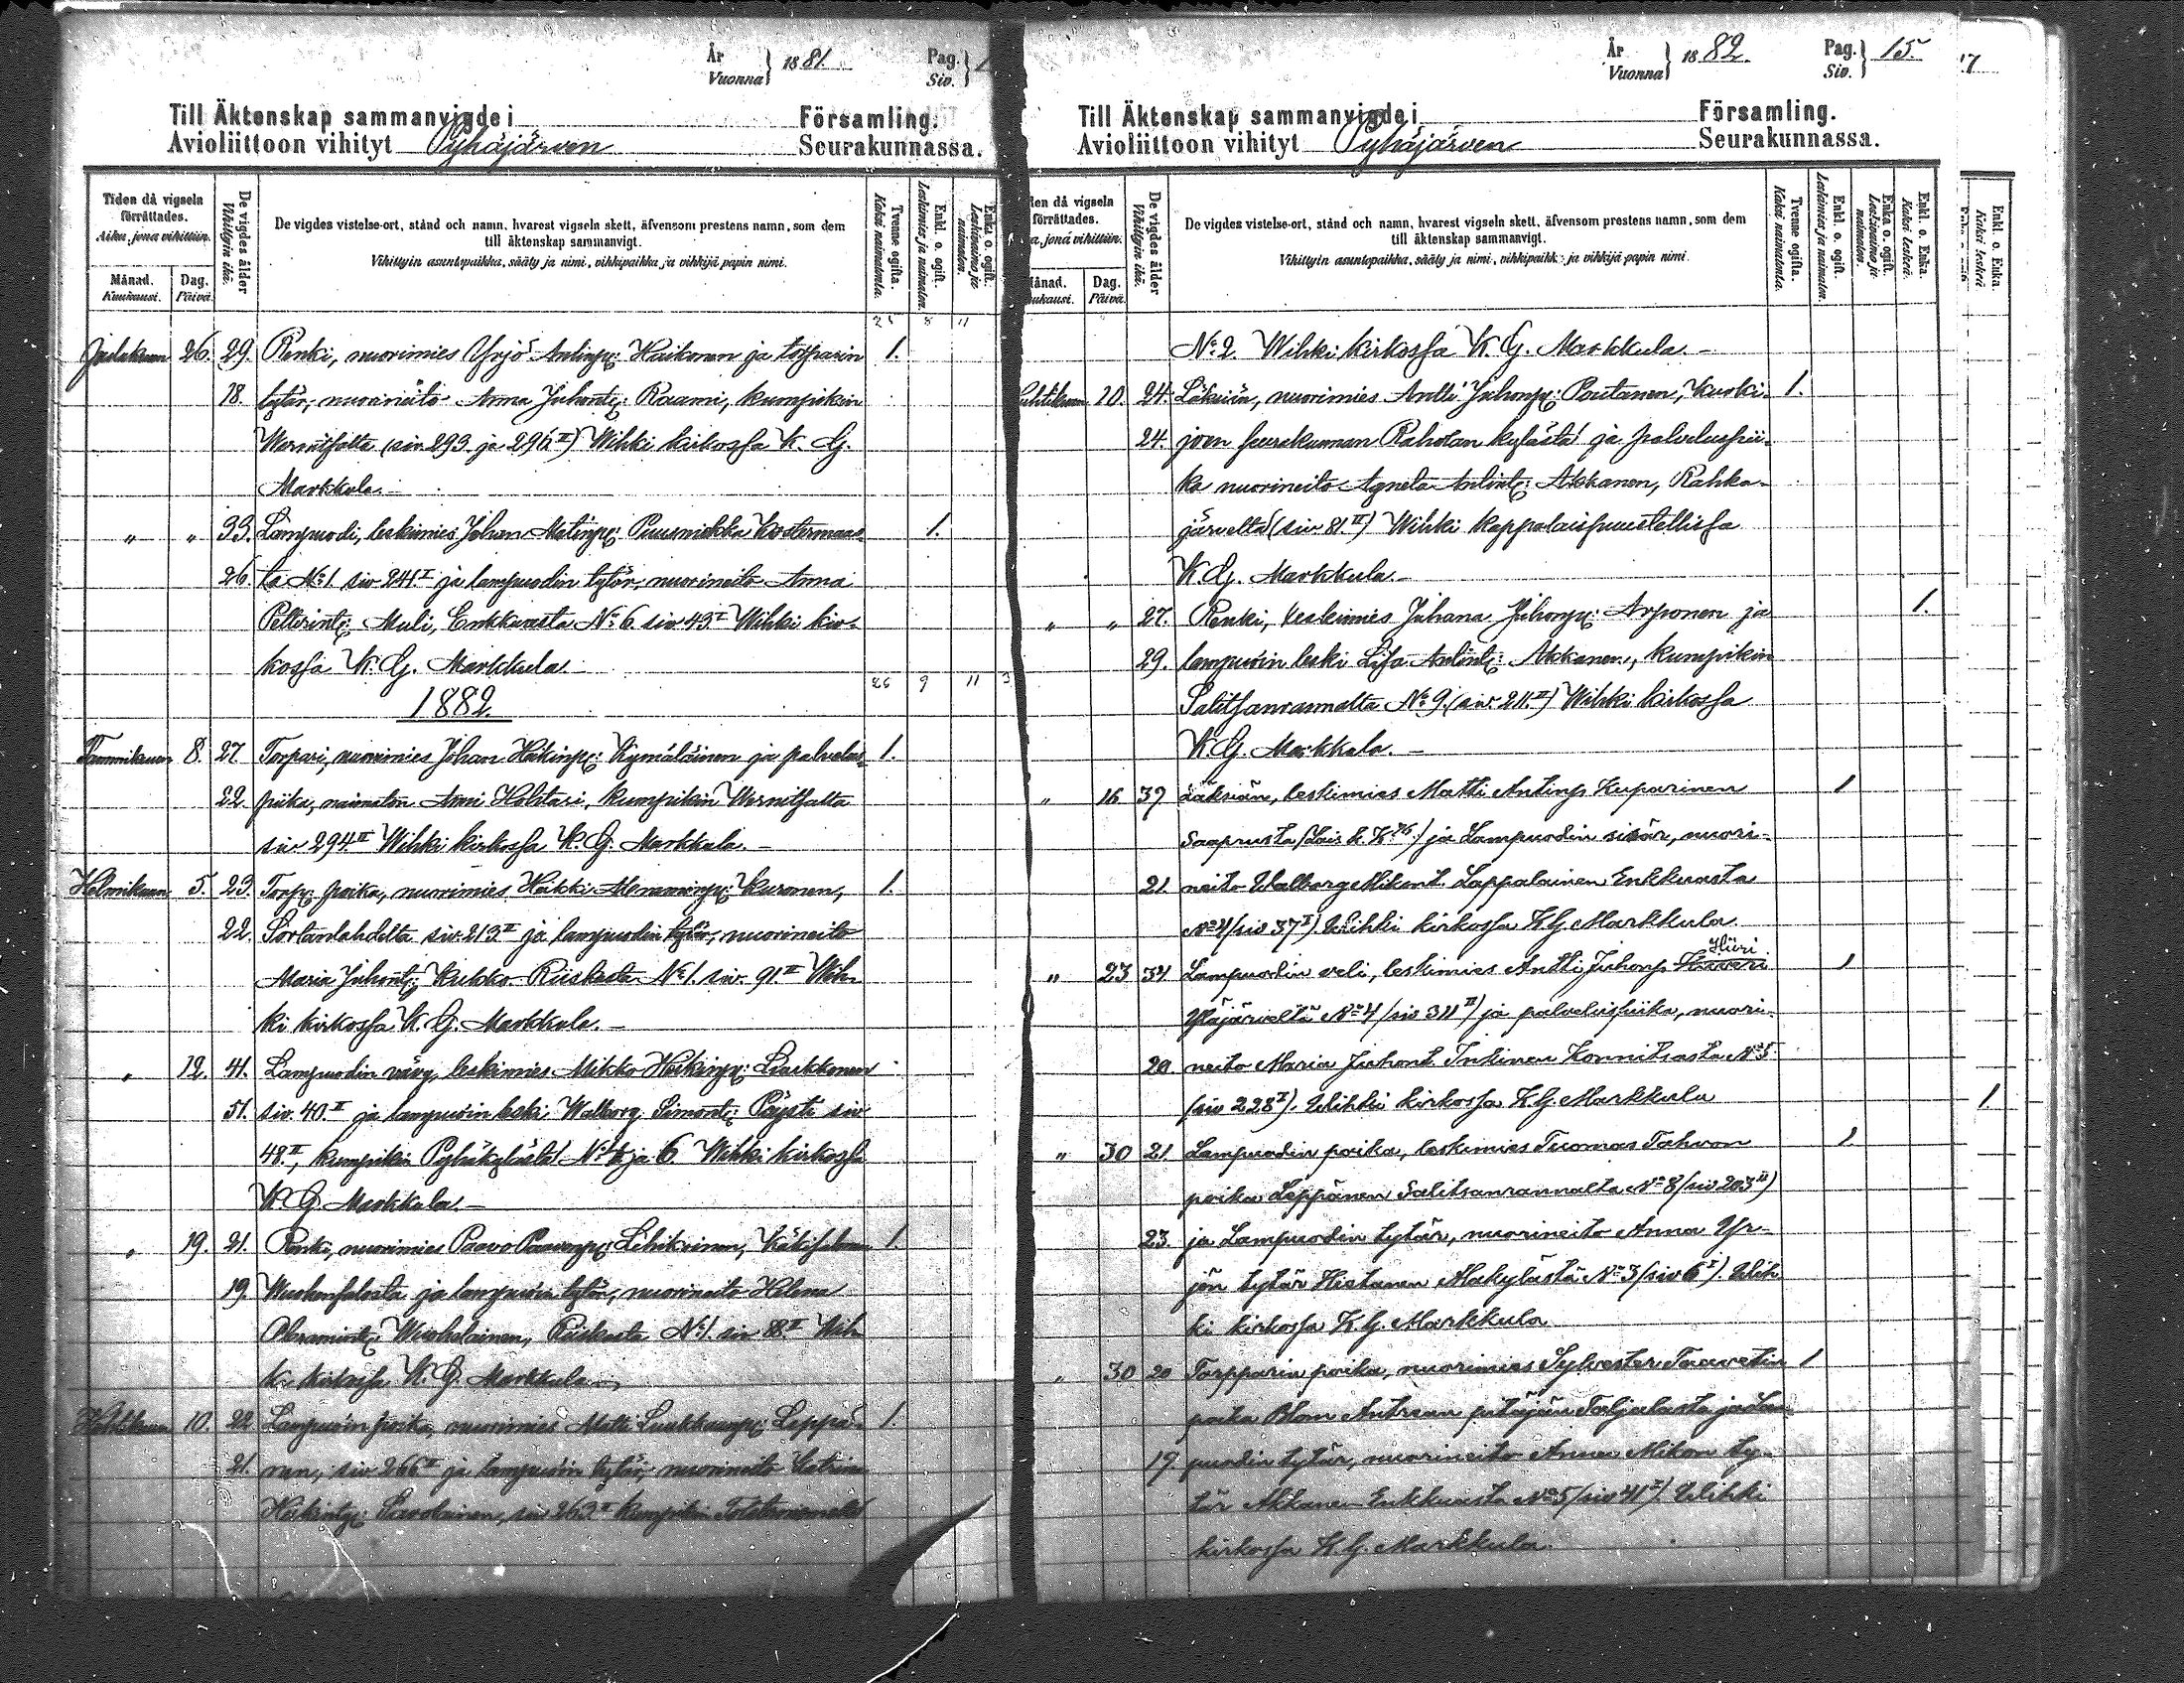 År
Vuonna } 1881.
Pag.
Siv. }
Till Äktenskap sammanvigde i Församling.
Avioliittoon vihityt Pyhäjärven Seurakunnassa.
Tiden då vigseln förrättades.
Aika, jona vihittiin.
Månad.
Kuukausi.
Dag.
Päivä.
De vigdes ålder
Vihittyin ikä.
De vigdes vistelse-ort, stånd och namn, hvarest vigseln skett, äfvensom prestens namn, som dem
till äktenskap sammanvigt.
Vihittyin asuntopaikka, sääty ja nimi, vihkipaikka ja vihkijä papin nimi.
Tvenne ogifta.
Kaksi naimatonta.
Enkl. o. ogift.
Leskimies ja naimaton.
Enka o. ogift.
Leskivaimo ja naimaton.
25 8 11
Joulukuun 26. 29. Renki, nuorimies Yrjö Antinp: Haikonen ja torparin 1.
18. tytär, nuorineito Anna Juhont: Raami, kumpikin
Wernitsalta (siv. 293 ja 296 II) Wihki kirkossa K. G.
Markkula.
" " 33. Lampuodi, leskimies Johan Matinp: Puusniekka Kostermaas- 1.
26. ta No 1. siv 241. I ja lampuodin tytär, nuorineito Anna
Petterint: Muli, Enkkuasta No 6 siv 43. I Wihki kir-
kossa K. G. Markkula.
26 9 11 3
1882.
Tammikuun 8. 27 Torpari, nuorimies Johan Heikinp: Kymäläinen ja palvelus- 1.
22. piika, naimaton Anni Holstari, kumpikin Wernitsalta
siv 294. II Wihki kirkossa K. G. Markkula. -
Helmikuun 5. 23. Torp: poika, nuorimies Heikki Kuronen, 1.
22. Sortanlahdelta siv. 213 II ja lampuodin tytär, nuorineito
Maria Juhont: Kukko Riiskasta No 1. siv. 91. II Wih-
ki kirkossa K. G. Markkula. -
" 12. 41. Lampuodin vävy, leskimies Mikko Heikinp: Liukkonen
51. siv. 40. II ja lampuoin leski Walborg Simont: Päysti siv
48. II, kumpikin Pyhäkylästä No ja 6. Wihki kirkossa
K. G. Markkula. -
" 19. 21. Renki, nuorimies Paavo Paavonp: Lihikoinen, Käkisalmen 1.
19. ja lampuoin tytär, nuorineito Helena
Abramint: Wuohelainen, Riiskasta No 1. siv 88. II Wih
ki kirkossa K. G. Markkula -
Huhtikuun 10. 22. Lampuoin poika, nuorimies Matti Luukkanp: Leppä- 1.
21. nen, siv 266 II ja lampuoin tytär, nuorineito Katrina
Heikint: Savolainen, siv 263. II kumpikin
År
Vuonna } 1882.
Pag.
Siv. } 15.
17
Till Äktenskap sammanvigde i Församling.
Avioliittoon vihityt Pyhäjärven Seurakunnassa.
den då vigseln
förrättades.
a, jona vihittiin.
Månad.
Kuukausi.
Dag.
Päivä.
De vigdes ålder
Vihittyin ikä.
De vigdes vistelse-ort, stånd och namn, hvarest vigseln skett, äfvensom prestens namn, som dem
till äktenskap sammanvigt.
Vihittyin asuntopaikka, sääty ja nimi, vihkipaikka ja vihkijä papin nimi.
Tvenne ogifta.
Kaksi naimatonta.
Enkl. o. ogift.
Leskimies ja naimaton.
Enka o. ogift.
Leskivaimo ja naimaton.
Enkl. o. Enka.
Kaksi leskeä.
Enkl. o. Enka.
Kaksi leskeä.
No 2. Wihki kirkossa K. G. Markkula. -
Huhtikuun 10. 24. Läksiäin, nuorimies Antti Juhonp: Poutanen, Kurki- 1.
24. joen seurakunnan Rahotan kylästä ja palveluspii-
ka nuorineito Agneta Antint: Akkanen, Rahka-
järveltä (siv 81. II) Wihki kappalaispuustellissa
K. G. Markkula. -
" " 27. Renki, leskimies Juhana Juhonp: Arponen ja 1.
29. lampuoin leski Lisa Antint: Akkanen, kumpikin
Salitsanrannalta No 9. (siv. 211. II) Wihki kirkossa
K. G. Markkula. -
" 16 39 Läksiän, leskimies Matti Antinp Kuparinen 1
Saaprusta ja Lampuodin sisär, nuori-
21. neito Walborg Mikont. Lappalainen Enkkuasta
No 4 (siv 37 I) Wihki kirkossa K. G. Markkula.
Hiiri
" 23 34 Lampuodin veli, leskimies Antti Juhonp 1
Yläjärveltä No 4 (siv 311 II) ja palveluspiika, nuori-
20 neito Maria Juhont. Inkinen Konnitsasta No 5
(siv 228 I). Wihki kirkossa K. G. Markkula 1.
" 30 21. Lampuodin poika, leskimies Tuomas Tahvon 1
poika Leppänen Salitsanrannalta No 8 (siv 203 II)
23. ja Lampuodin tytär, nuorineito Anna Yr-
jön tytär Hietanen Alakylästä No 3 (siv 6 I). Wih
ki kirkossa K. G. Markkula
" 30 20 Torpparin poika, nuorimies Sylvester Taavetin 1
poika Blom Antrean pitäjän Taljalasta ja Lam-
19. puodin tytär, nuorineito Anna Mikon ty-
tär Akkanen Enkkuasta No 5 (siv 41 I). Wihki
kirkossa K. G. Markkula.